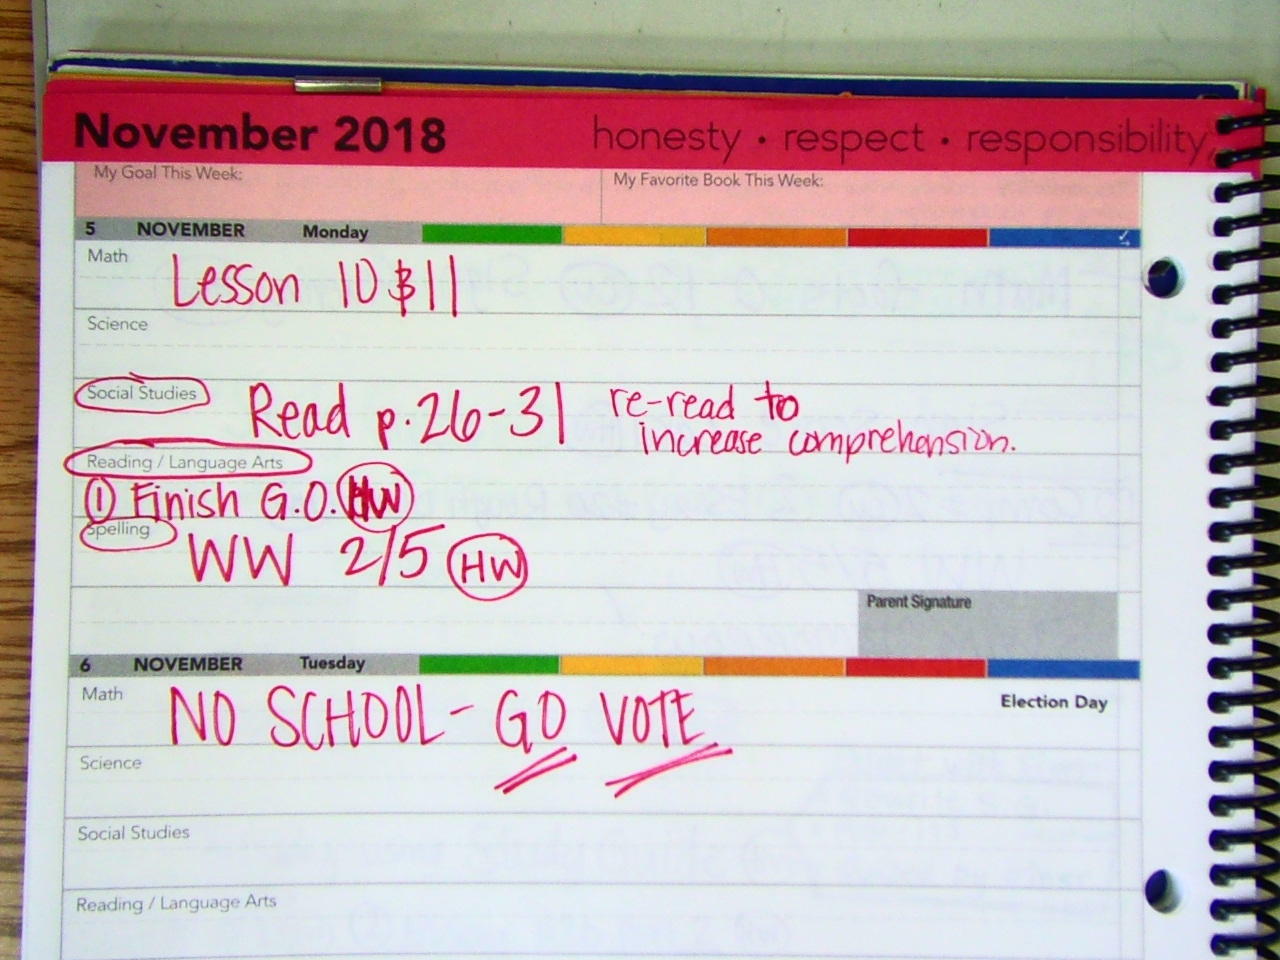 November 2018 honesty • respect • responsibility
My Goal This Week: My Favorite Book This Week:
5 NOVEMBER Monday
Math
Lesson 10 & 11
Science
Social Studies
Read p. 26-31 re-read to
increase comprehension.
Reading / Language Arts
① Finish G.O. HW
Spelling
WW 2/5 HW
Parent Signature
6 NOVEMBER Tuesday
Math
NO SCHOOL - GO VOTE
Election Day
Science
Social Studies
Reading / Language Arts